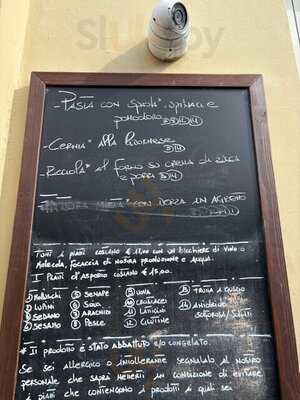 - Pasta con spada*, spinaci e
pomodoro
- Cernia* alla livornese
- Ricciola* al forno su crema di zucca
e porri
con
Tutti i piatti costano € 13,00 con un bicchiere di vino o
focaccia di nostra produzione e acqua.
I piatti d'asporto costano € 15,00.
① Molluschi ⑤ Senape ⑨ Uova ⑬ Frutta a guscio
② Lupini ⑥ Soia ⑩ Crostacei ⑭ Anidride
③ Sedano ⑦ Arachidi ⑪ Latticini solforosa/Solfiti
④ Sesamo ⑧ Pesce ⑫ Glutine
* Il prodotto è stato abbattuto e/o congelato.
Se sei allergico o intollerante segnalalo al nostro
personale che saprà metterti in condizione di evitare
i piatti che contengono i prodotti ai quali sei